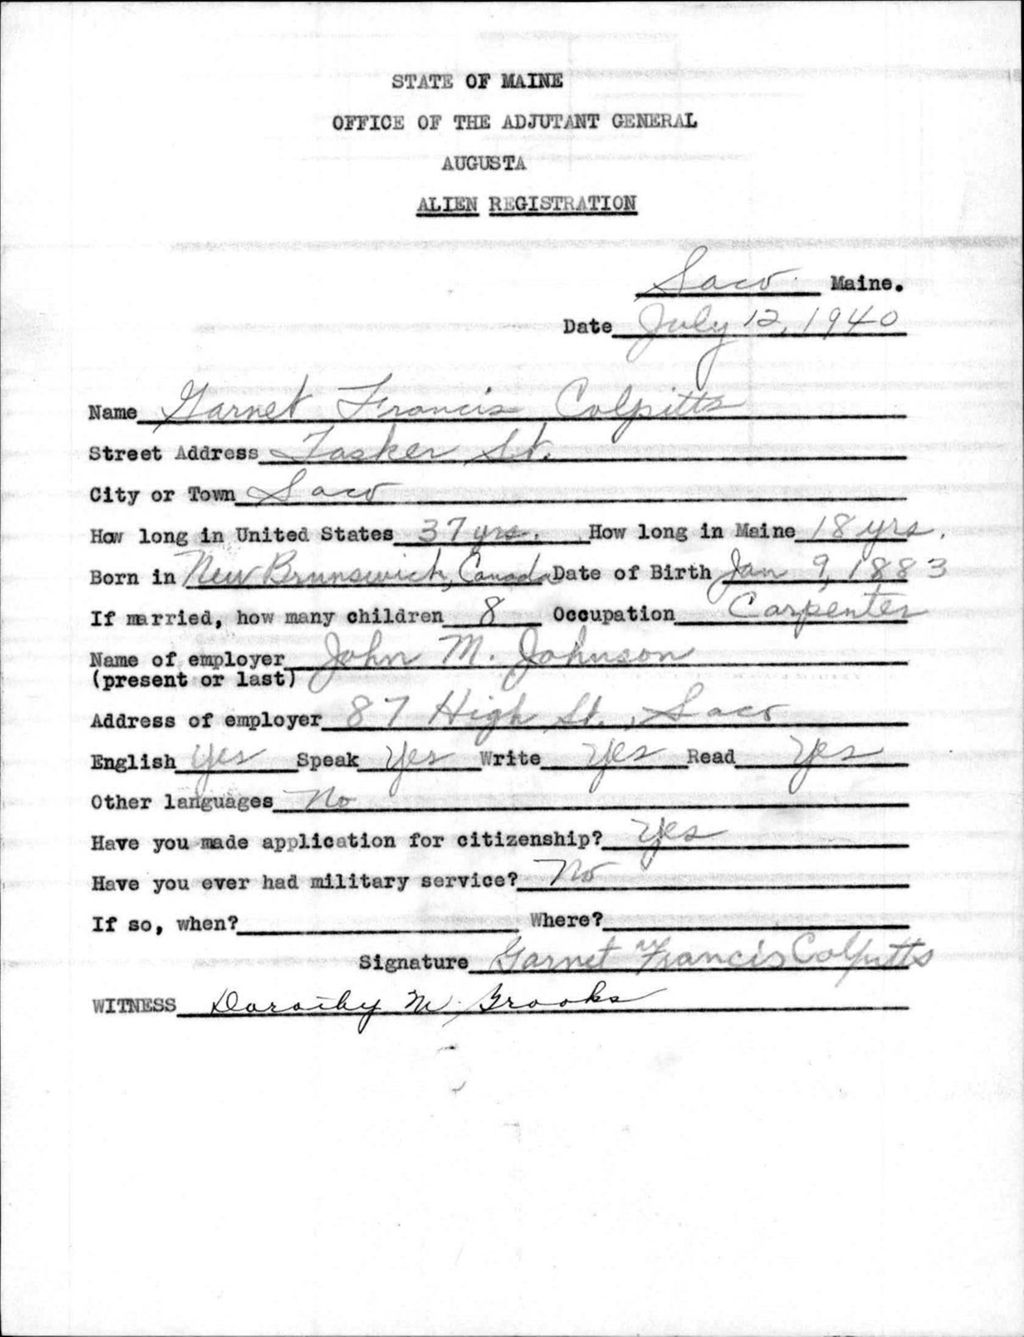 STATE OF MAINE
OFFICE OF THE ADJUTANT GENERAL
AUGUSTA
ALIEN REGISTRATION
Saco Maine.
Date July 12, 1940
Name Garnet Francis Colpitts
Street Address Tasker St.
City or Town Saco
How long in United States 37 yrs. How long in Maine 18 yrs.
Born in New Brunswick, Canada Date of Birth Jan 9, 1883
If married, how many children 8 Occupation Carpenter
Name of employer John M. Johnson
(present or last)
Address of employer 87 High St., Saco
English Yes Speak Yes Write Yes Read Yes
Other languages No
Have you made application for citizenship? Yes
Have you ever had military service? No
If so, when? Where?
Signature Garnet Francis Colpitts
WITNESS Dorothy M. Brooks